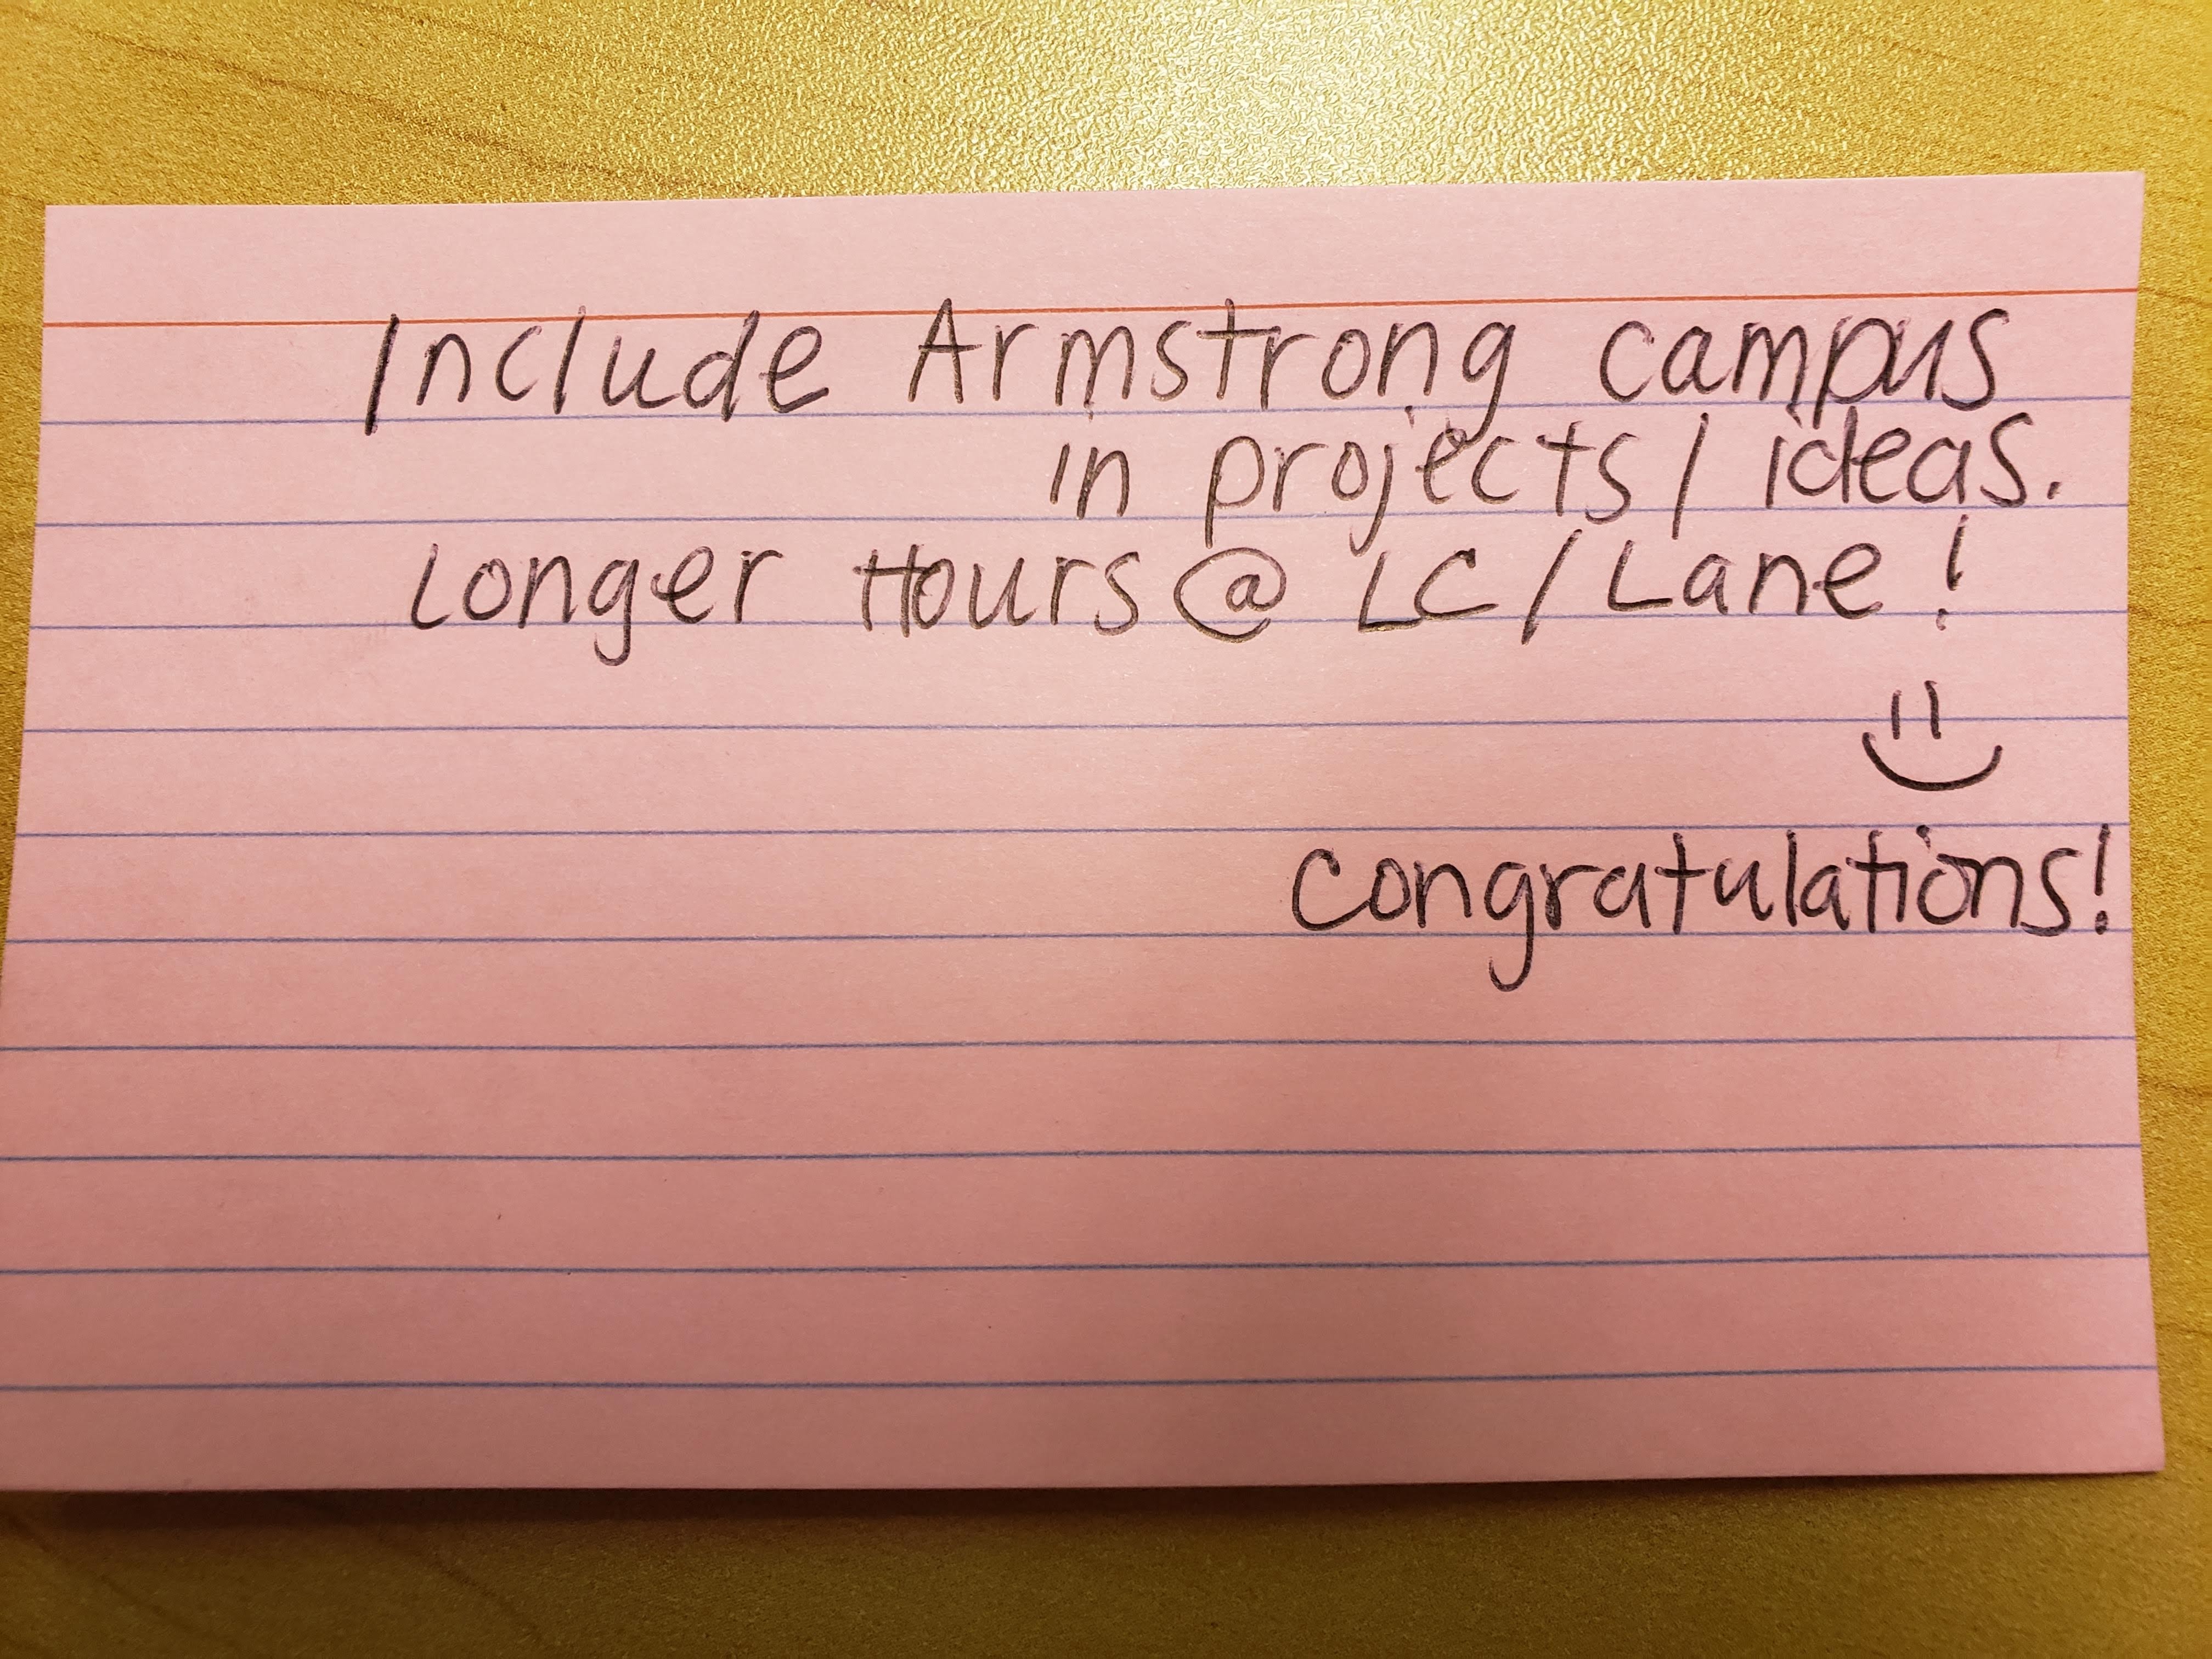 Include Armstrong campus
in projects/ideas.
Longer Hours @ LC/Lane!
Congratulations!